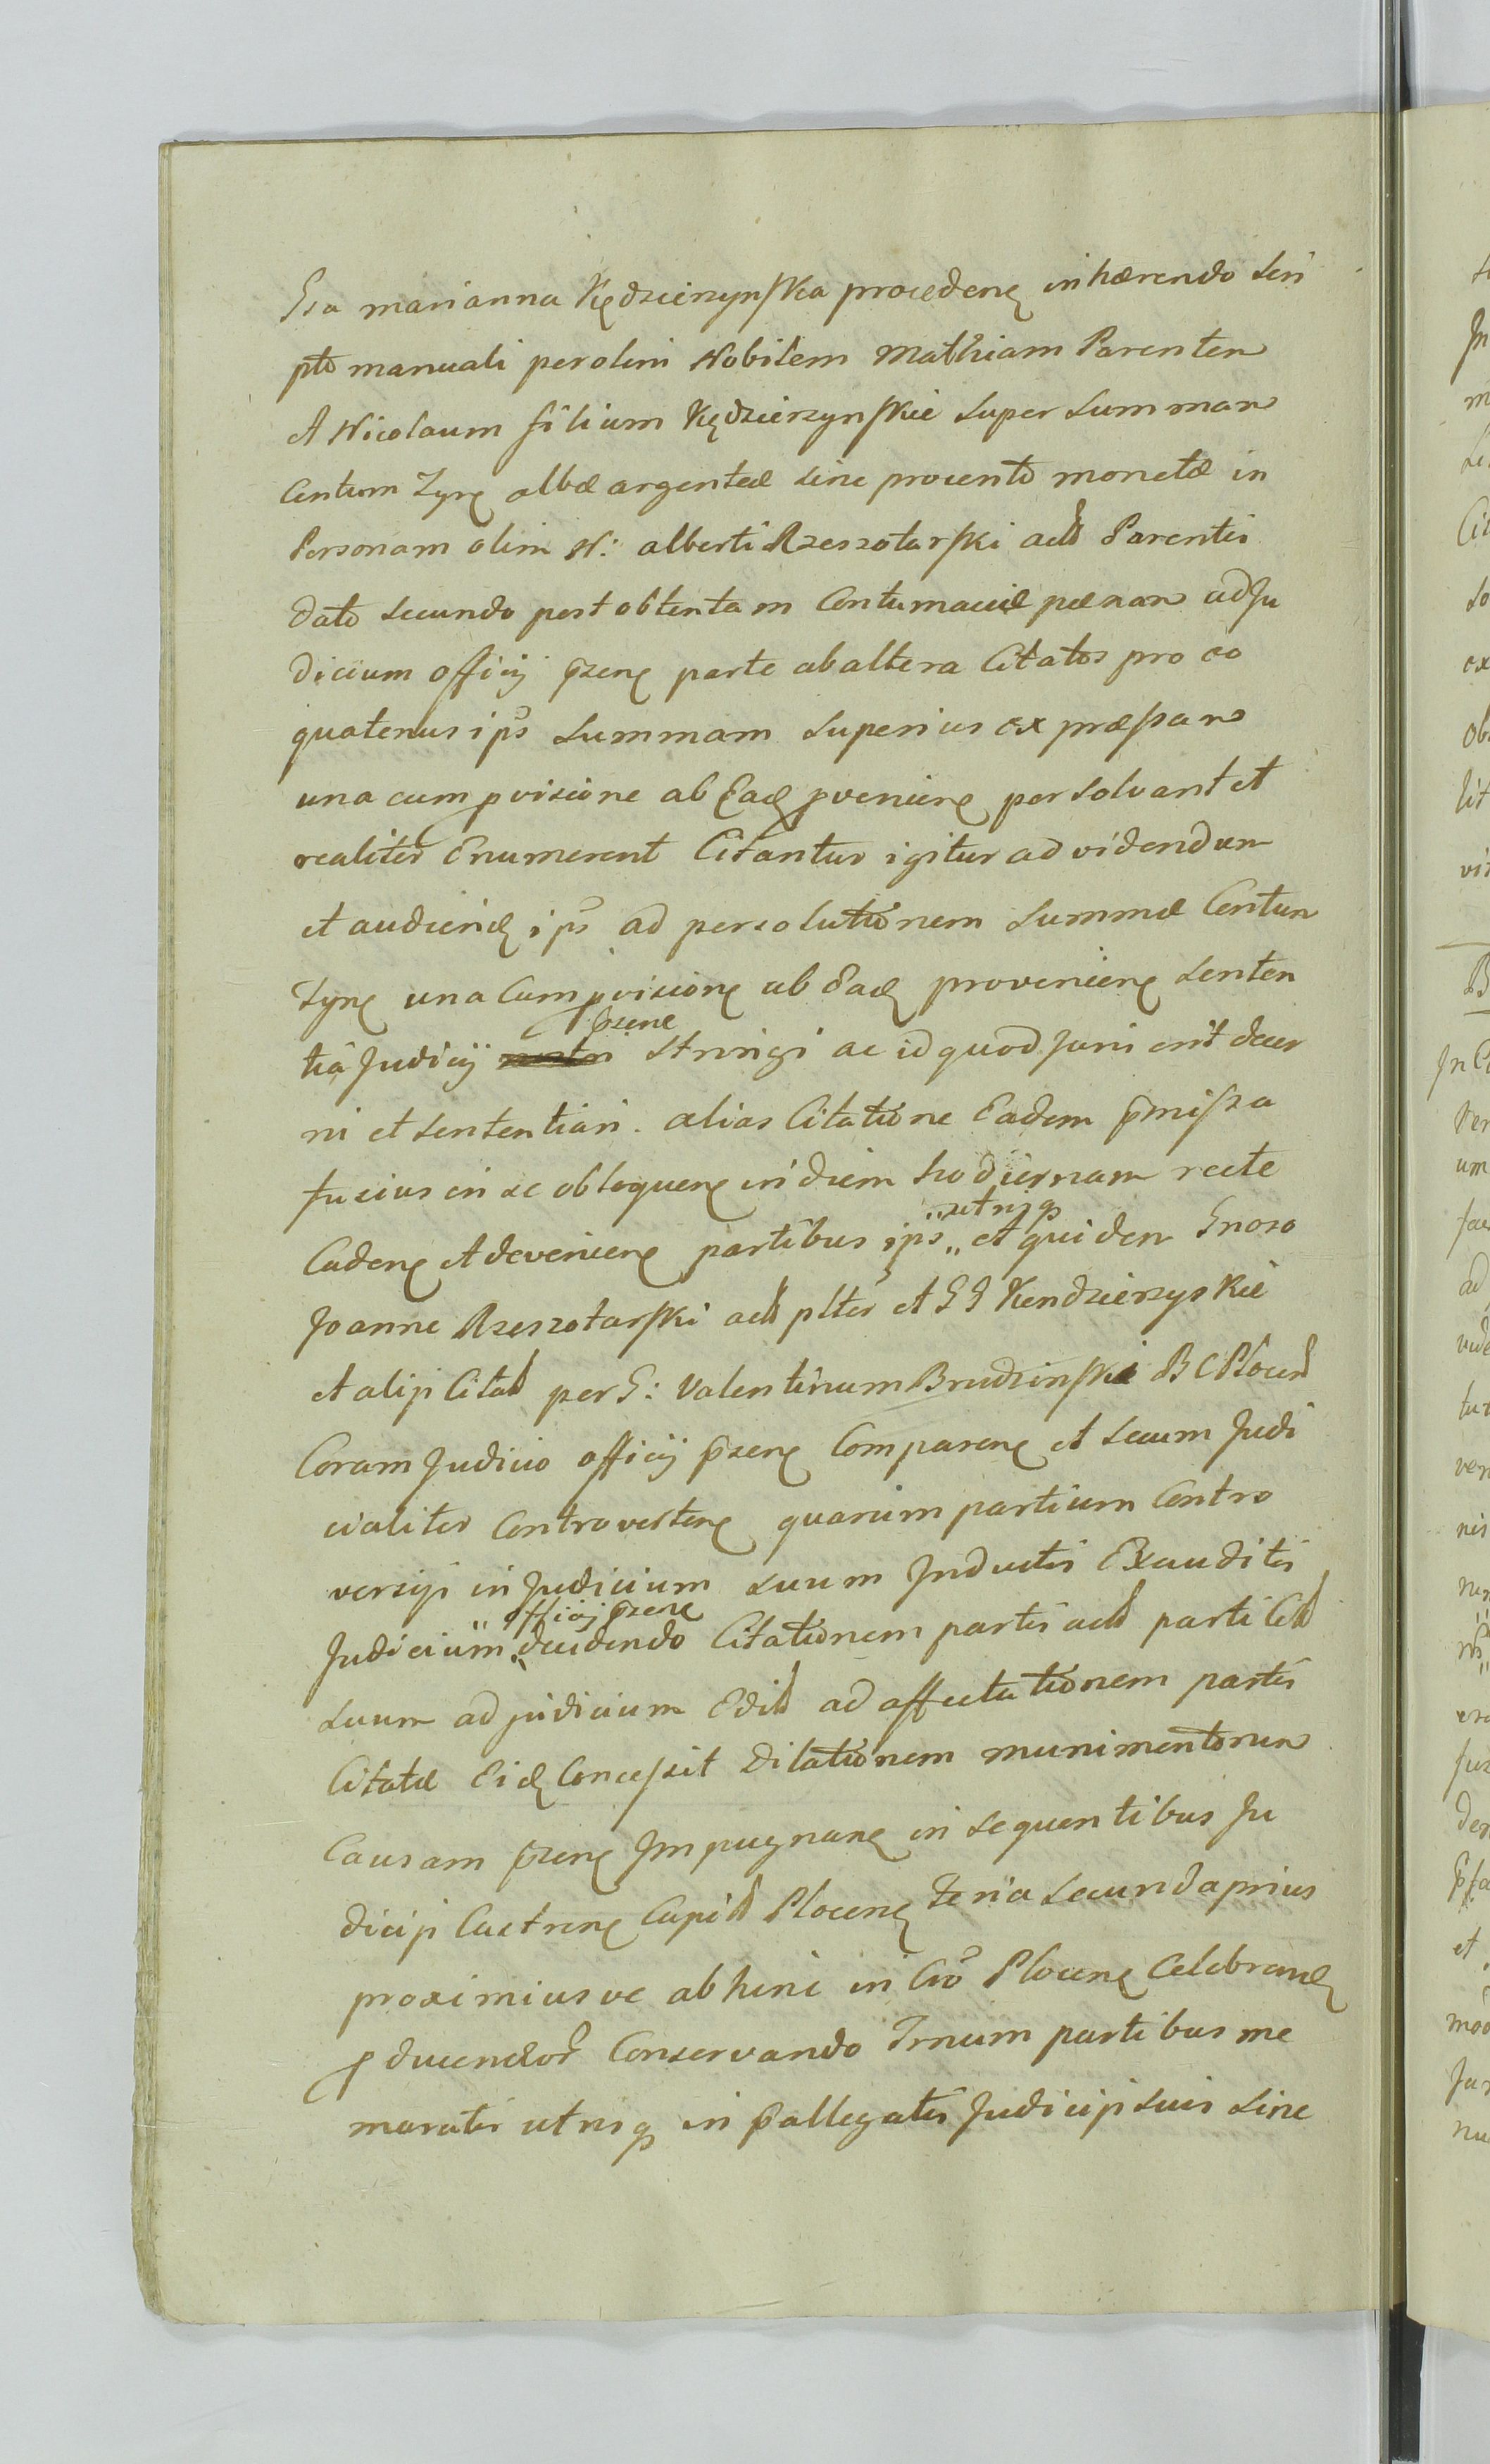 Gsa marianna Kędzierzynska procedeñ inhærendo Scri
pto manuali per olim Nobilem Mathiam Parentem
et Nicolaum filium Kędzierzynskie super summam
Centum Tyñ albæ argenteæ sine procento monetæ in
Personam olim N: alberti Rzeszotarski act Parentis
dato secundo post obtentam Contumaciæ pænam ad Ju
dicium officij p̃señ parte ab altera Citatos pro eo
quatenus ips̃ summam superius expræssam
una cum pvisione ab Ead proveñ persolvant et
realiter Enumerent Citantur igitur ad videndum
et audiend ips̃ ad persolutionem summæ Centum
Tyñ una Cum pvisione ab Ead provenieñ senten
tia Judicij p̃señ stringi ac id quod Juri erit decer
ni et sententiari. alias Citatione Eadem p̃missa
fusius in se obloqueñ in diem hodiernam recte
Cadeñ et devenieñ partibus ips̃ „ utrisq „ et quidem Gnoso
Joanne Rzeszotarski act plter et GG Kendzierzyskie
et alijs Citat per G: Valentinum Brudzinski B C Plocen
Coram Judicio officij p̃señ Compareñ et secum Judi
cialiter Controverteñ quarum partium Contro
versijs in Judicium suum Inductis Exauditis
Judicium „ officij p̃señ „ decidendo Citationem partis act parti Cit
suum ad judicium Edit ad affectationem partis
Citatæ Eid Concessit dilationem munimentorum
Causam p̃señ Impugnañ in sequentibus Ju
dicijs Castreñ Capit Ploceñ feria secunda prius
proximiusve ab hinc in Cro Ploceñ Celebrand
pducendor Conservando Trnum partibus me
moratis utrisq in p̃allegatis Judicijs suis sine